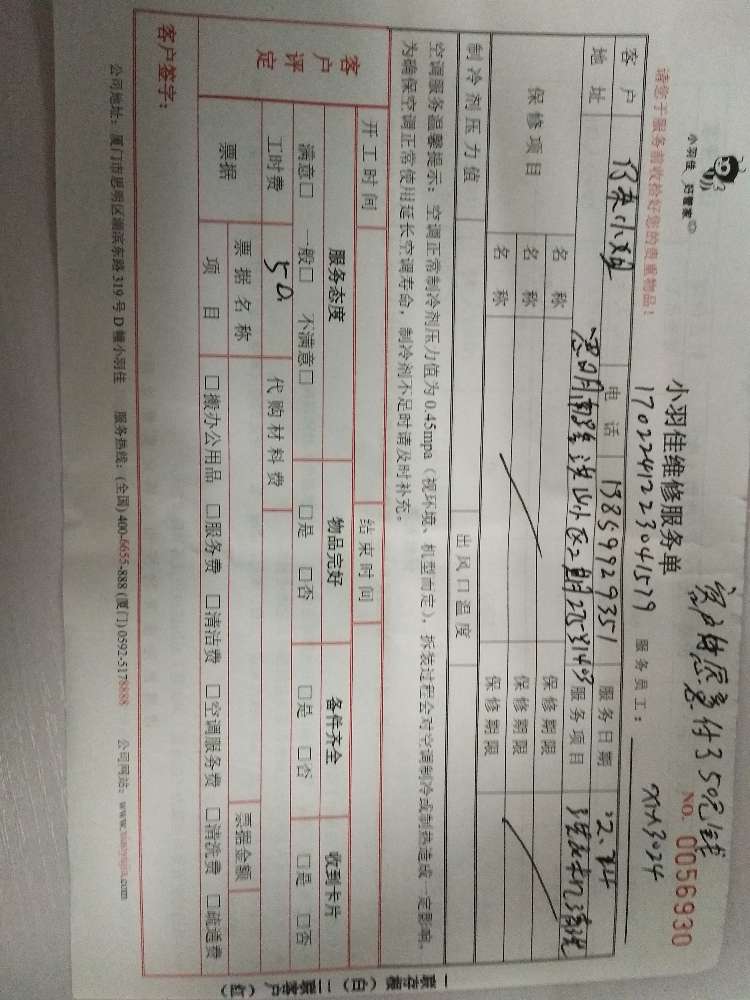 小羽佳 好管家
小羽佳维修服务单
NO. 0056930
客户 付了50元钱
17022412230415
服务员工：
XM3024
请您于服务前收检好您的贵重物品！
客户
电话
服务日期
地址
小区2期
服务项目
洗衣机清洗
保修项目
名称
保修期限
名称
保修期限
名称
保修期限
制冷剂压力值
出风口温度
空调服务温馨提示：空调正常制冷剂压力值为0.45mpa（视环境、机型而定），拆装过程会对空调制冷或制热造成一定影响，
为确保空调正常使用延长空调寿命，制冷剂不足时请及时补充。
开工时间
结束时间
客户评定
服务态度
物品完好
备件齐全
收到卡片
满意□ 一般□ 不满意□
□是 □否
□是 □否
□是 □否
工时费
50.
代购材料费
票据
票据名称
票据金额
项目
□搬办公用品 □服务费 □清洁费 □空调服务费 □清洗费 □疏通费
客户签字：
公司地址：厦门市思明区湖滨东路319号D幢小羽佳 服务热线：(全国)400-6655-888 (厦门)0592-5178888 公司网站：www.xiaoyujia.com
一联存根（白）二联客户（红）